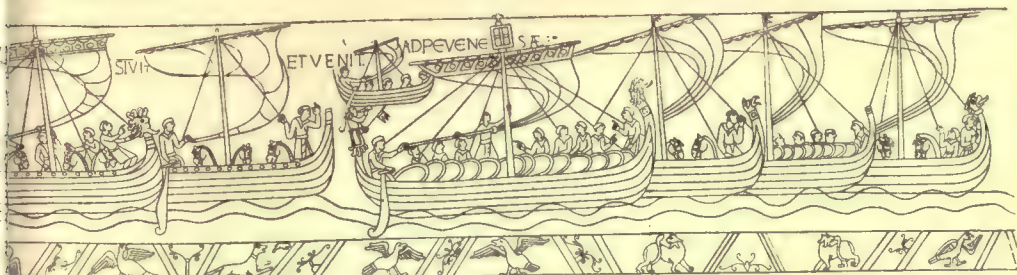 SIVIT ET VENIT AD PEVENESÆ: